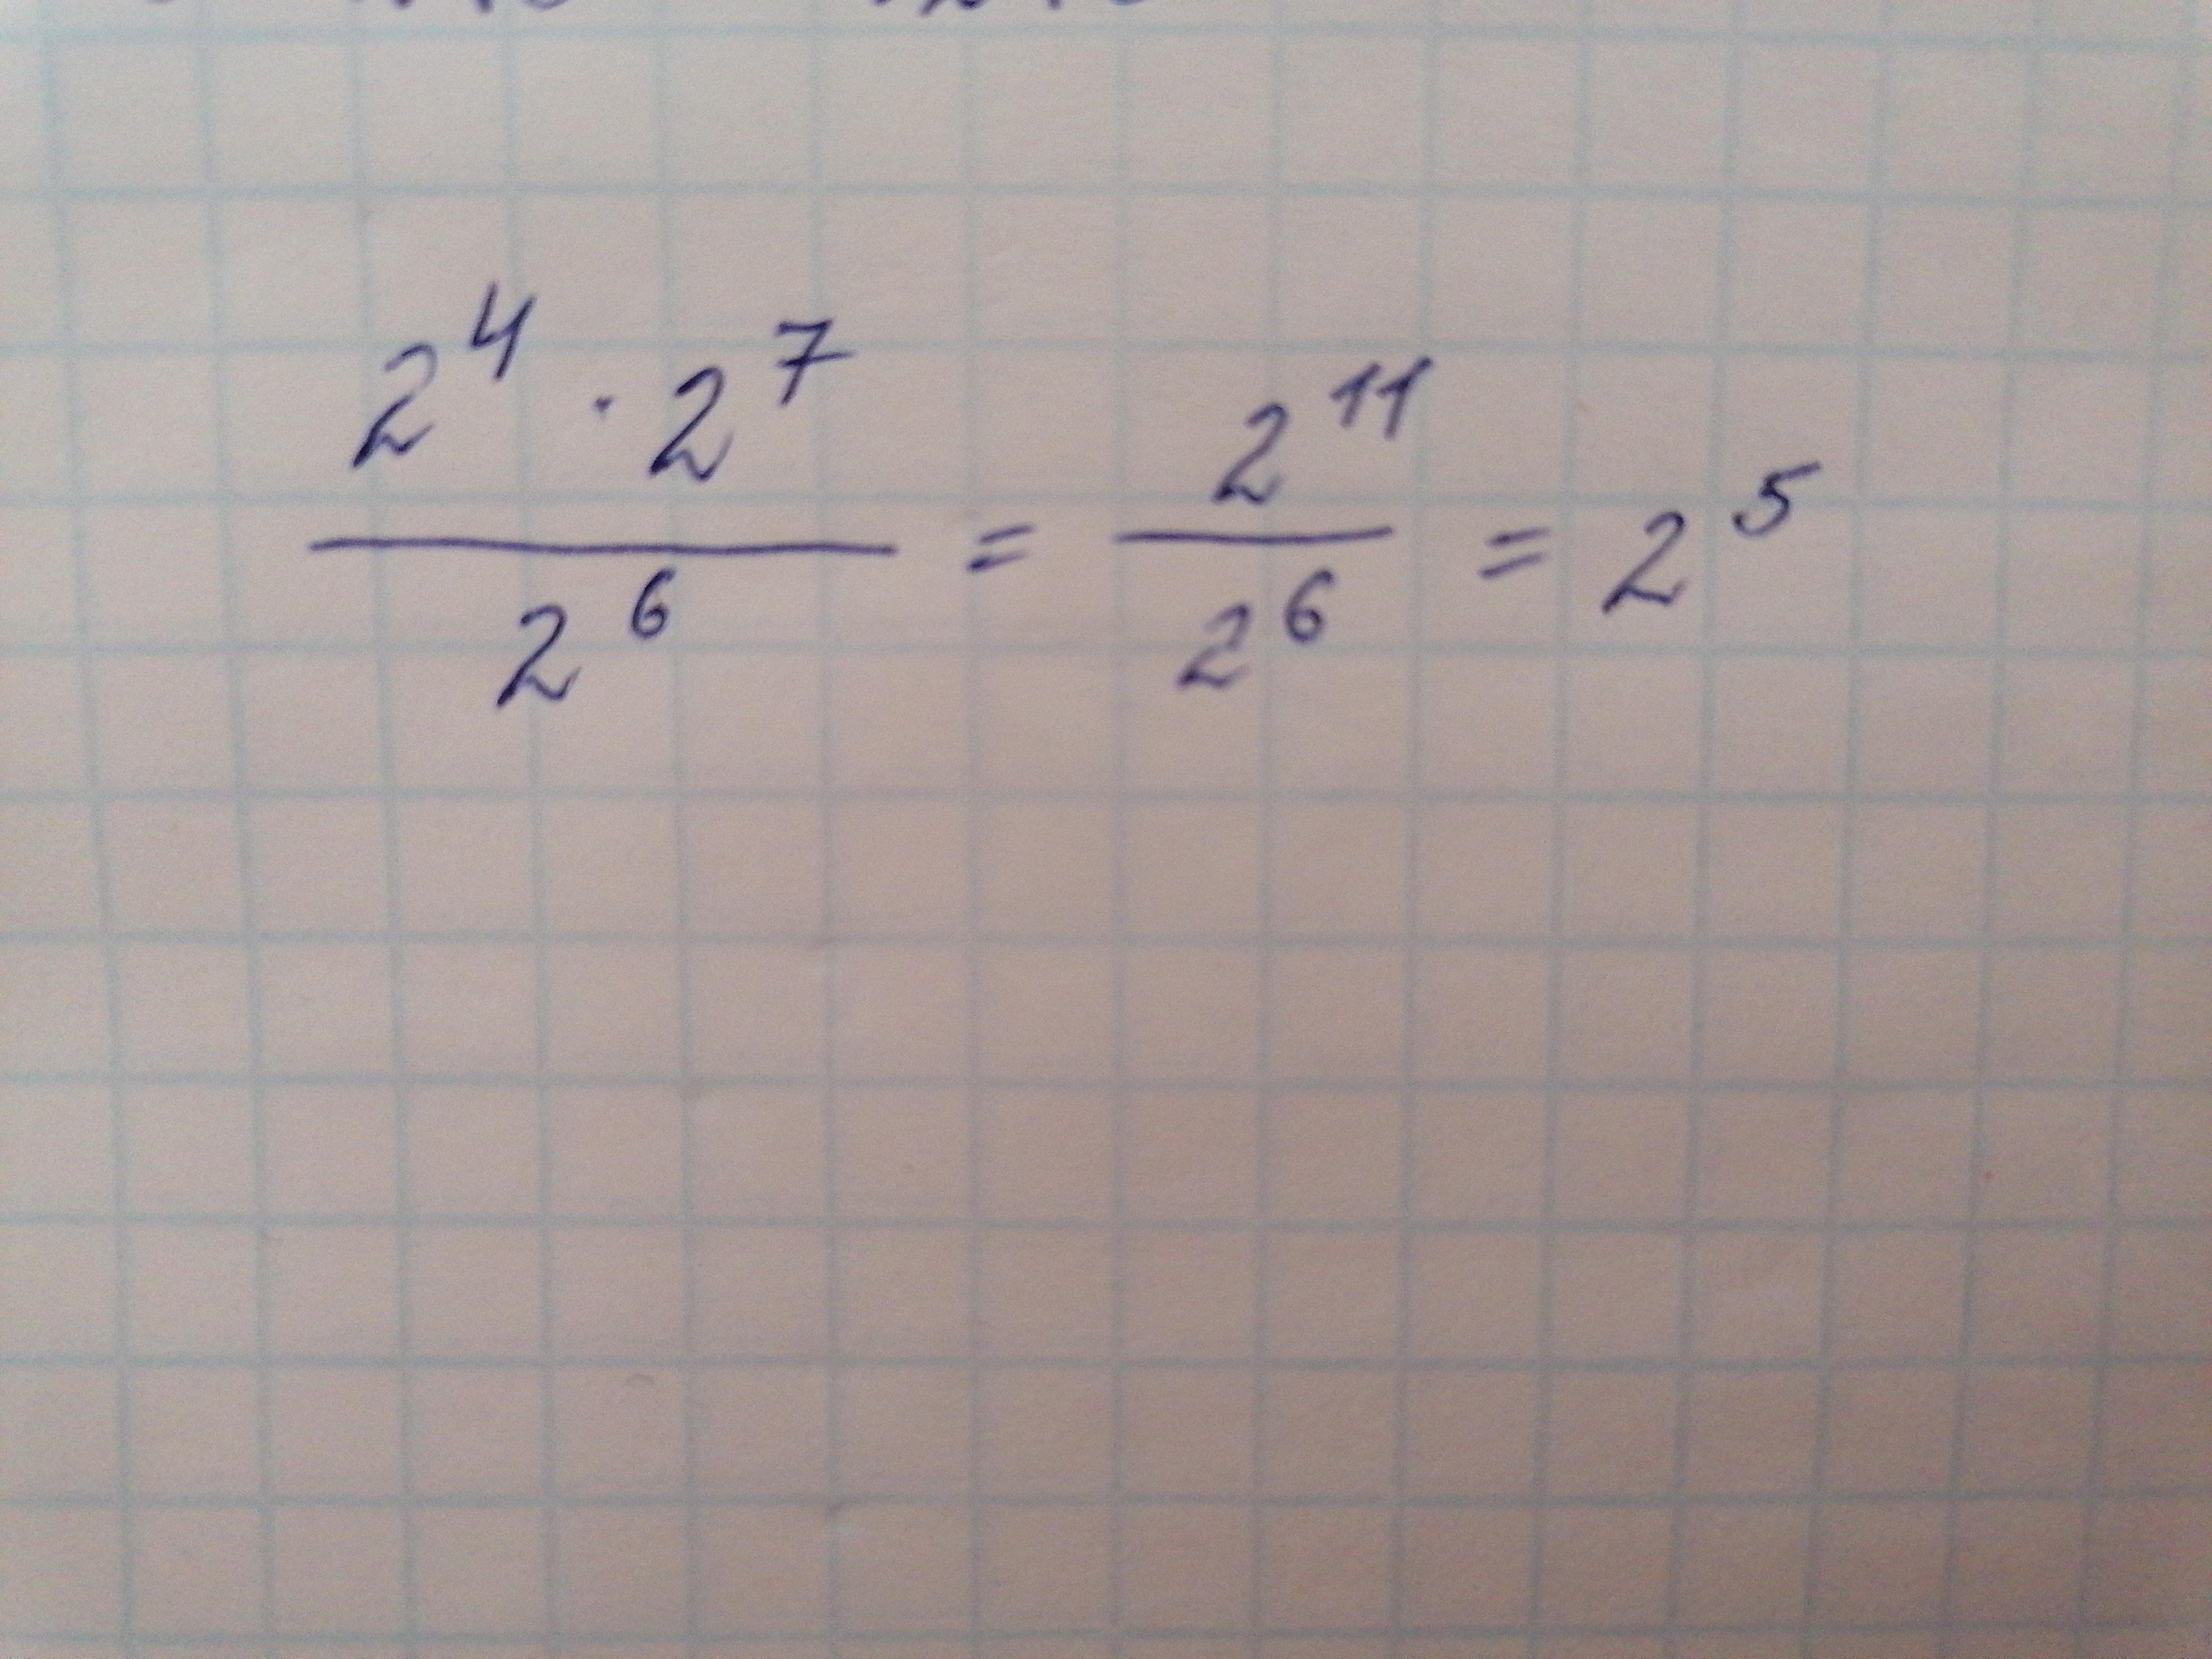 2^4 · 2^7 / 2^6 = 2^11 / 2^6 = 2^5